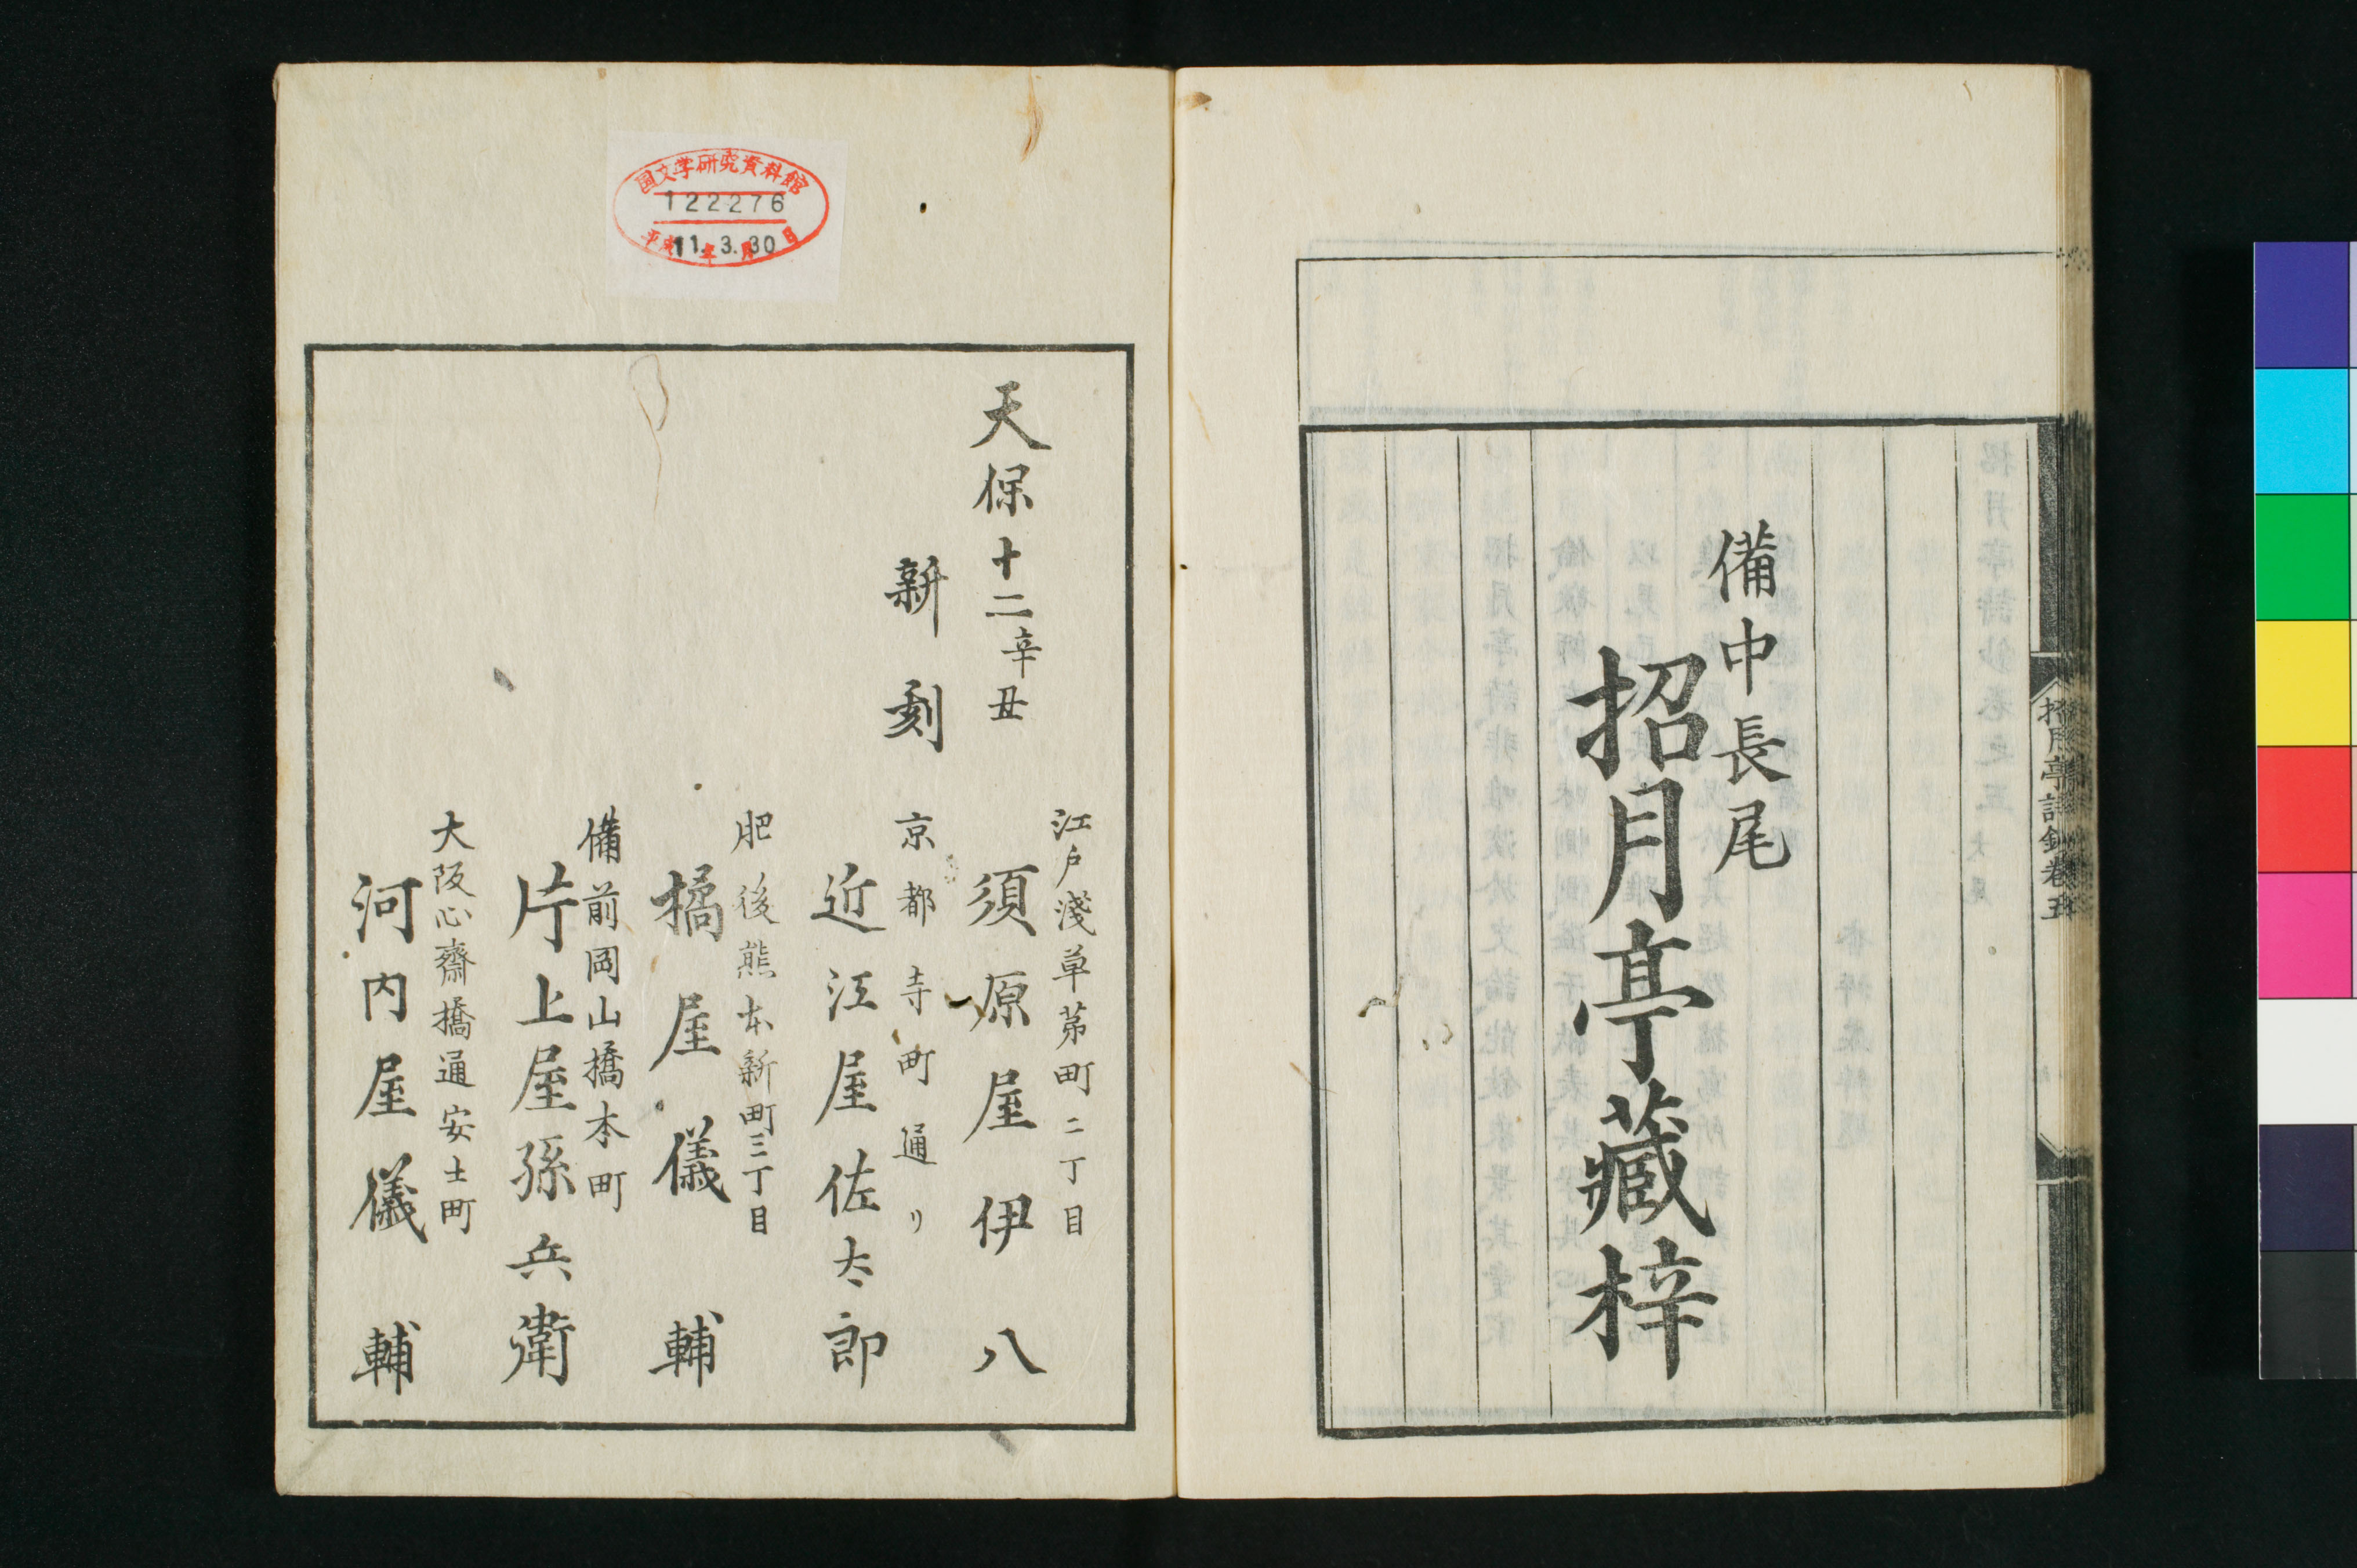 備中長尾
招月亭藏梓
招月亭詩鈔卷五
国文学研究資料館
122276
平成11年3月30日
天保十二辛丑
新刻
江戸淺草茅町二丁目
須原屋伊八
京都寺町通り
近江屋佐太郎
肥後熊本新町三丁目
橘屋儀輔
備前岡山橋本町
片上屋孫兵衛
大阪心齋橋通安土町
河内屋儀輔